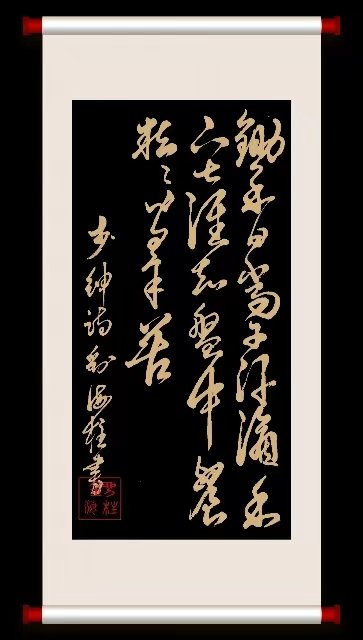 鋤禾日當午汗滴禾
下土誰知盤中餐
粒々皆辛苦
李紳詩劉海柱書